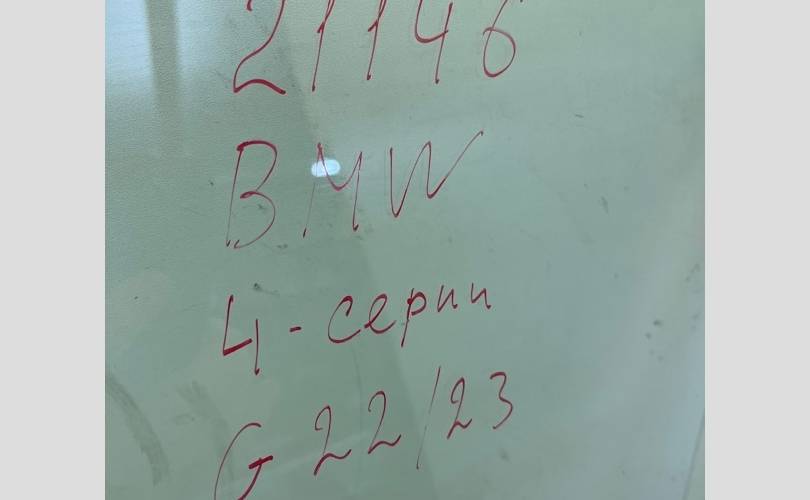 21146
BMW
4-серии
G 22/23